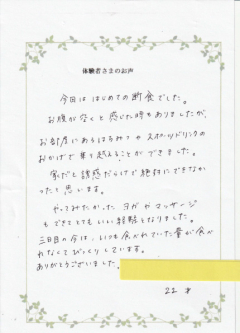 体験者さまのお声
今回は はじめての断食でした。
お腹が空くと感じた時もありましたが、
お部屋にあるはちみつやスポーツドリンクの
おかげで乗り越えることができました。
家だと誘惑だらけで絶対にできなか
ったと思います。
やってみたかったヨガやマッサージ
もできてとてもいい経験となりました。
三日目の今は、いつも食べれていた量が食べ
れなくてびっくりしています。
ありがとうございました。